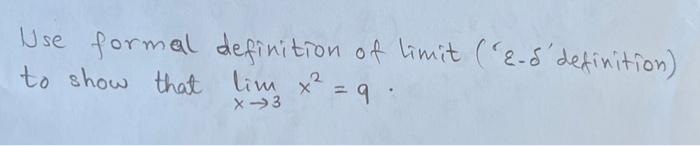 Use formal definition of limit (‘ε-δ’ definition)
to show that lim x→3 x² = 9 .